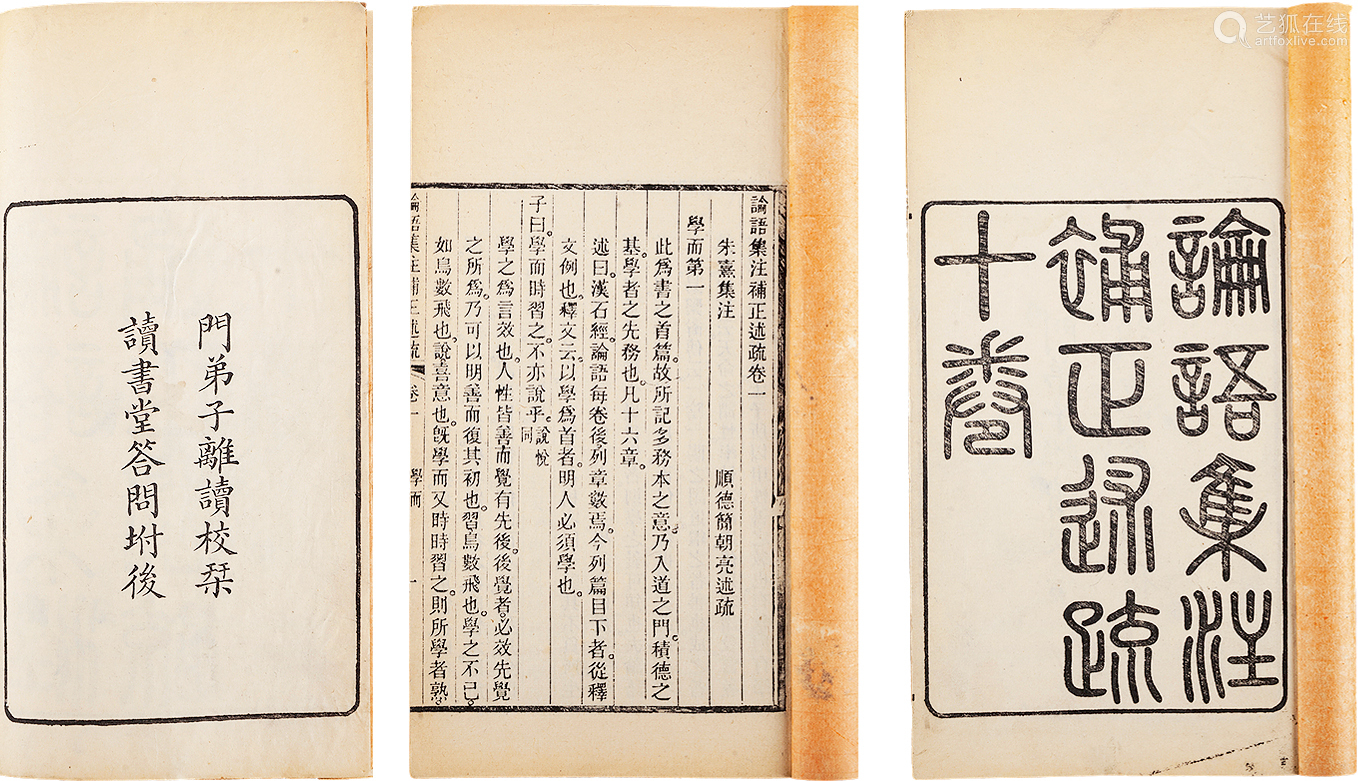 門弟子離讀校栞
讀書堂答問坿後
論語集注補正述疏卷一
朱熹集注
順德簡朝亮述疏
學而第一
此爲書之首篇。故所記多務本之意。乃入道之門。積德之
基。學者之先務也。凡十六章。
述曰。漢石經論語每卷後。列章數焉。今列篇目下者。從釋
文例也。釋文云。以學爲首者。明人必須學也。
子曰。學而時習之。不亦說乎。說悅同
學之爲言效也。人性皆善而覺有先後。後覺者。必效先覺
之所爲。乃可以明善而復其初也。習。鳥數飛也。學之不已。
如鳥數飛也。說。喜意也。旣學而又時時習之。則所學者熟。
論語集注補正述疏 卷一 學而 一
論語集注
補正述疏
十卷
艺狐在线
artfoxlive.com